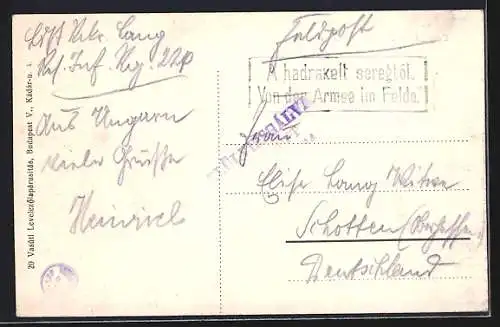 Feldpost
Lang
Res. Inf. Reg. 220
Aus Ungarn
viele Grüße
Heinrich
A hadrakelt seregtől.
Von der Armee im Felde.
Frau
Elise Lang Witwe
Schotten (Oberhessen)
Deutschland
29 Vasúti Levelezőlapárusítás, Budapest V., Kádár-u.